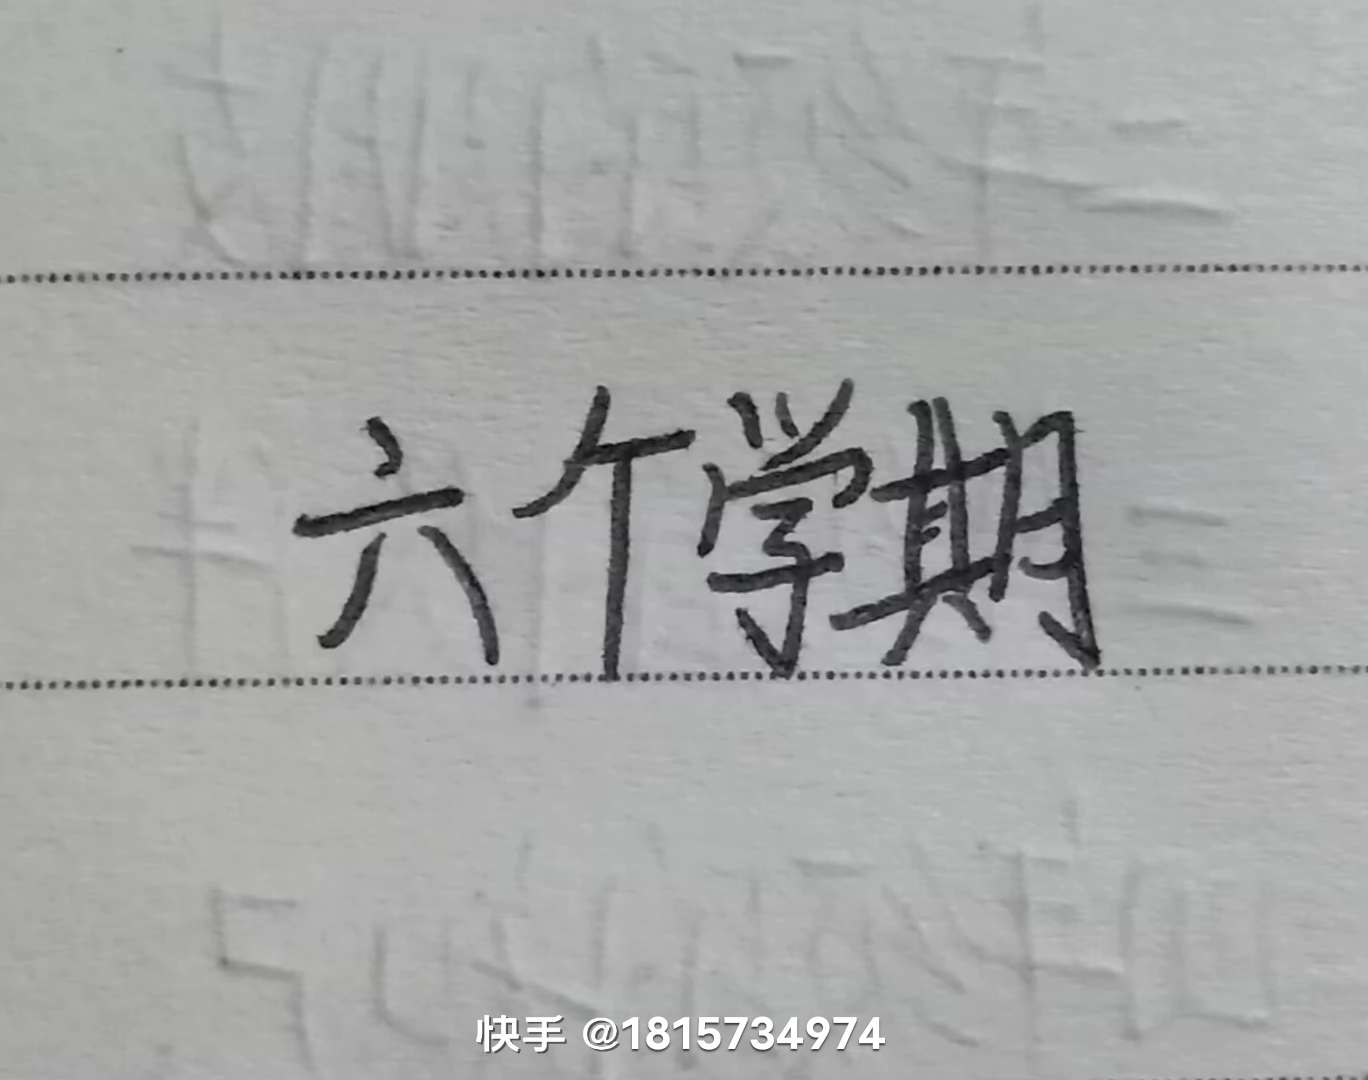 六个学期
快手 @1815734974